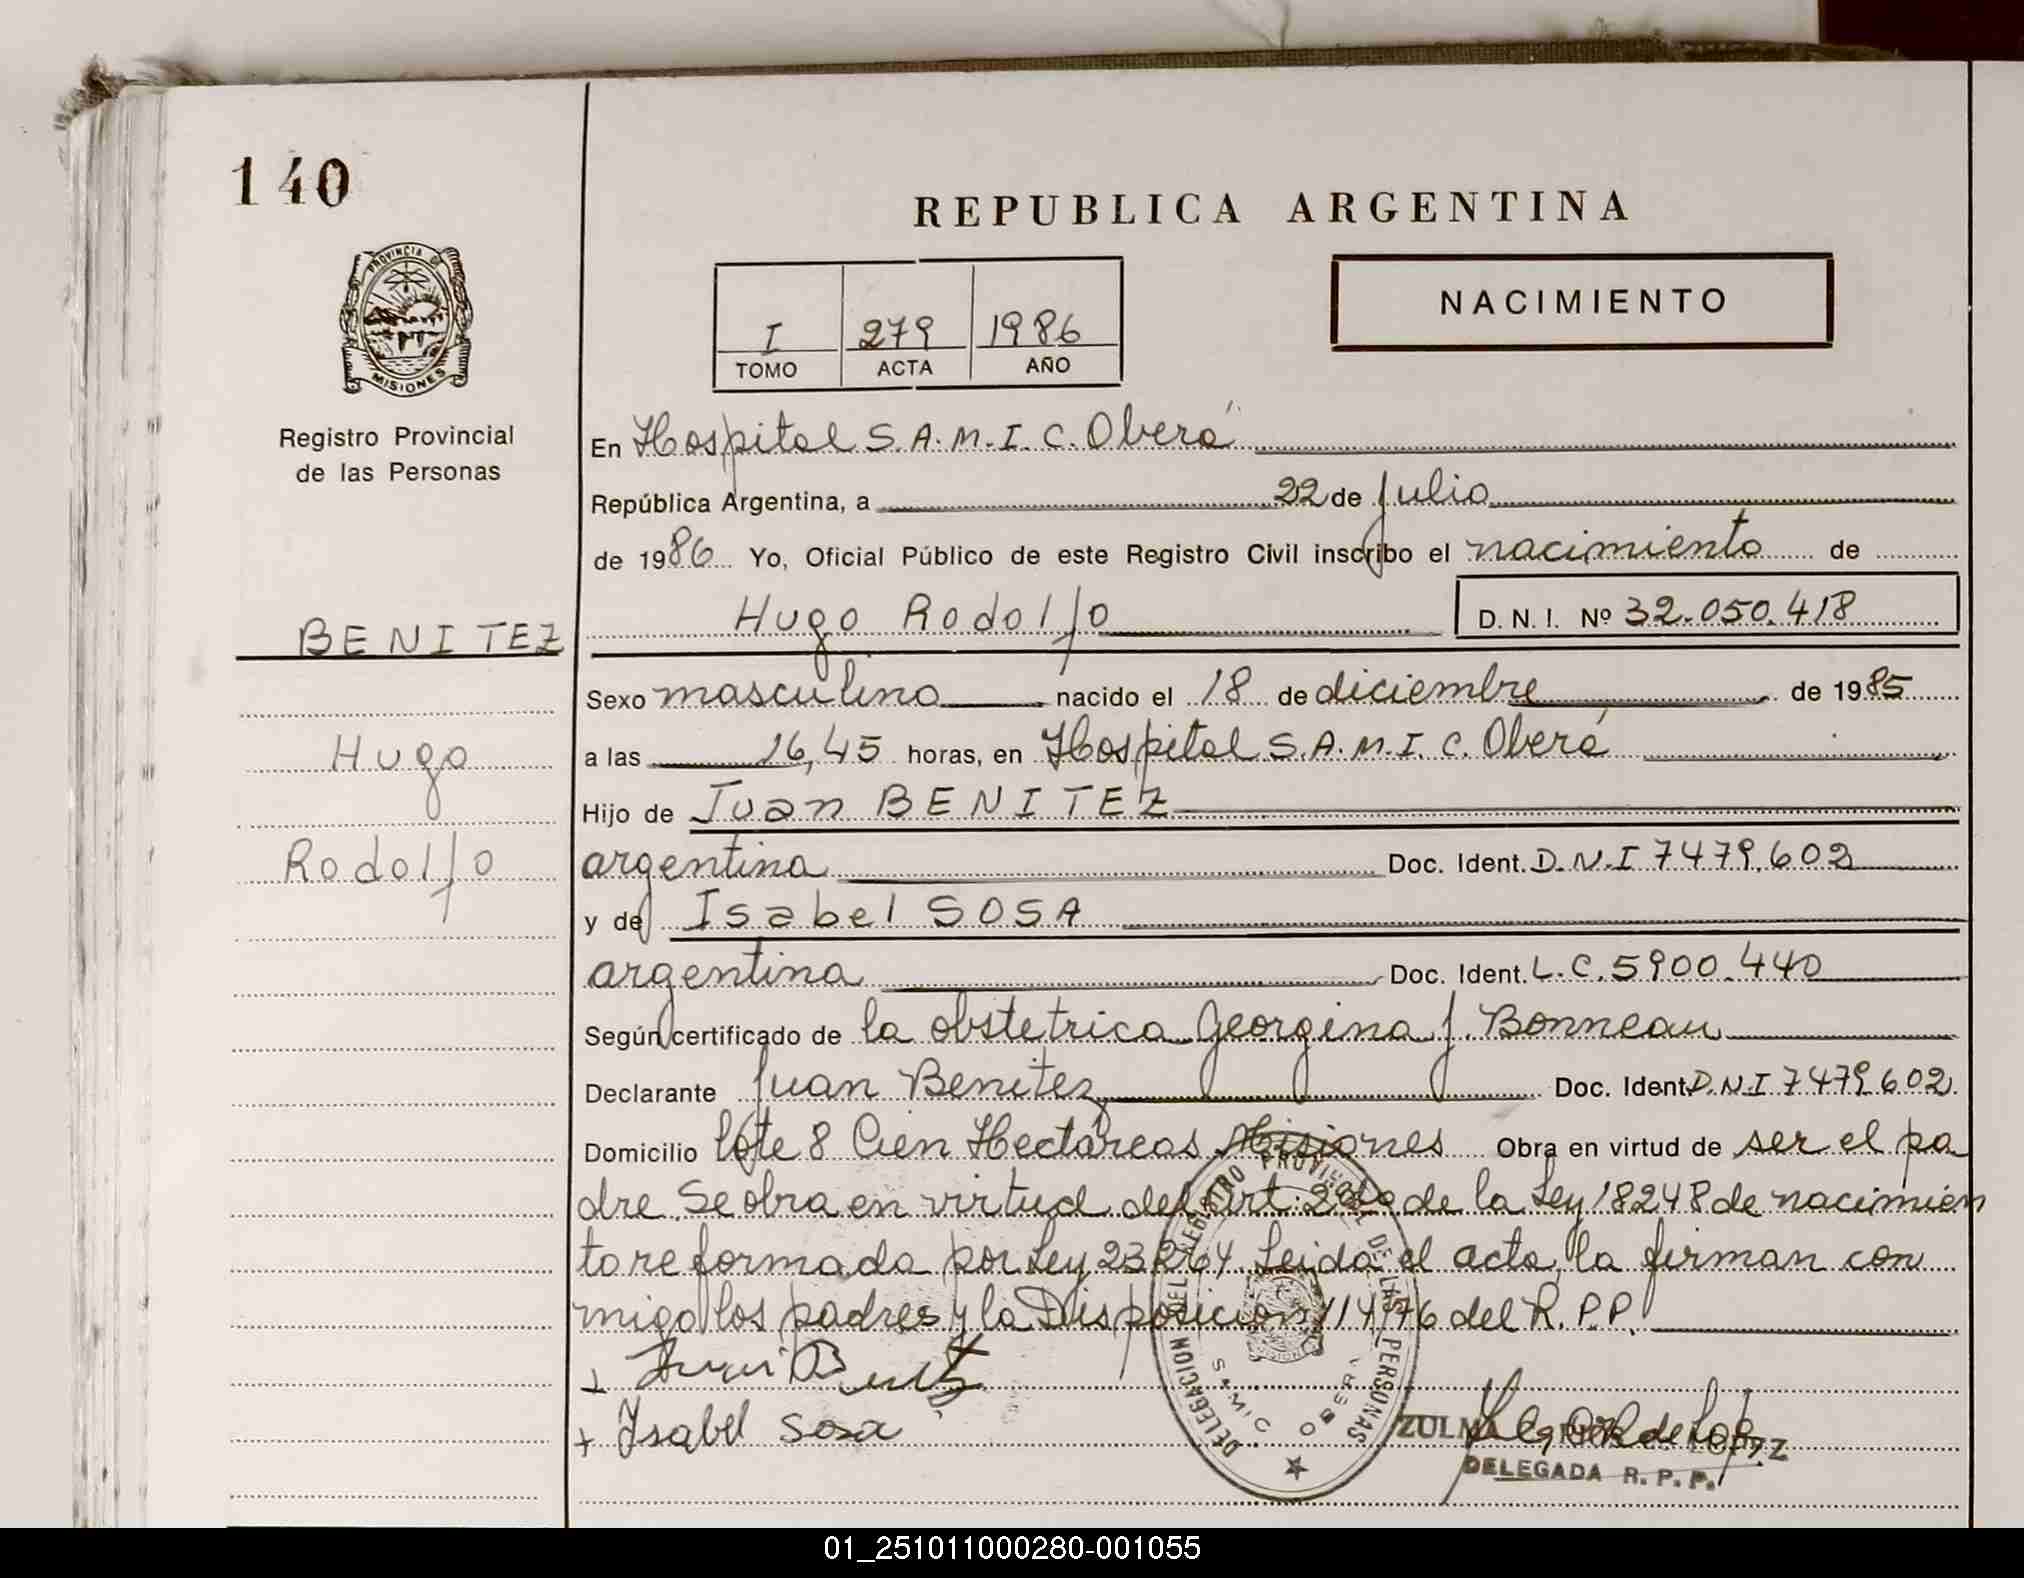 140
REPUBLICA ARGENTINA
PROVINCIA DE
MISIONES
I 279 1986
TOMO ACTA AÑO
NACIMIENTO
Registro Provincial
de las Personas
En Hospital S.A.M.I.C. Oberá
República Argentina, a 22 de Julio
de 1986 Yo, Oficial Público de este Registro Civil inscribo el nacimiento de
Hugo Rodolfo D.N.I. Nº 32.050.418
BENITEZ
Hugo
Rodolfo
Sexo masculino nacido el 18 de diciembre de 1985
a las 16,45 horas, en Hospital S.A.M.I.C. Oberá
Hijo de Juan BENITEZ
argentina Doc. Ident. D.N.I 7479.602
y de Isabel SOSA
argentina Doc. Ident. L.C. 5900.440
Según certificado de la obstetrica Georgina J. Bonneau
Declarante Juan Benitez Doc. Ident. D.N.I 7479.602
Domicilio lote 8 Cien Hectáreas Misiones Obra en virtud de ser el pa
dre. Se obra en virtud del art. 2do de la Ley 18248 de nacimien
to reformada por Ley 23264 Leida el acta, la firman con
migo los padres y la Disposicion 114/76 del R.P.P.
+ Juan Benitez
+ Isabel Sosa
DELEGACION DEL REGISTRO PROVINCIAL DE LAS PERSONAS
SAMIC OBERA
ZULMA LOPEZ
DELEGADA R.P.P.
01_251011000280-001055